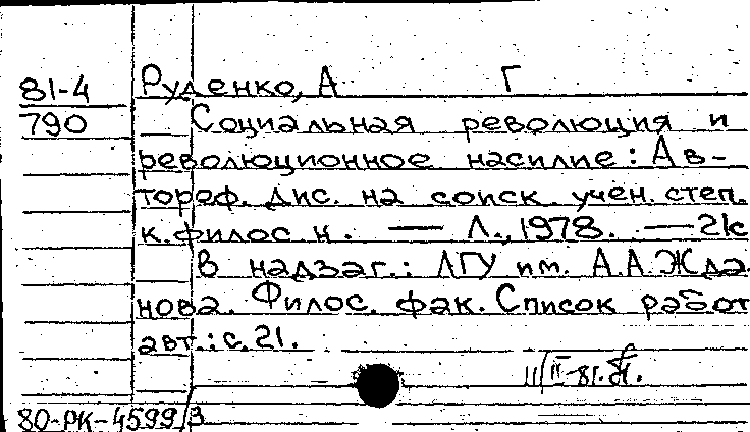 81-4 Руденко, А Г
790 Социальная революция и
революционное насилие: Ав-
тореф. дис. на соиск. учен. степ.
к. филос. н. — Л., 1978. — 21с
В надзаг.: ЛГУ им. А.А. Жда
нова. Филос. фак. Список работ
авт.: с. 21.
11/II-81.
80-РК-4599/3